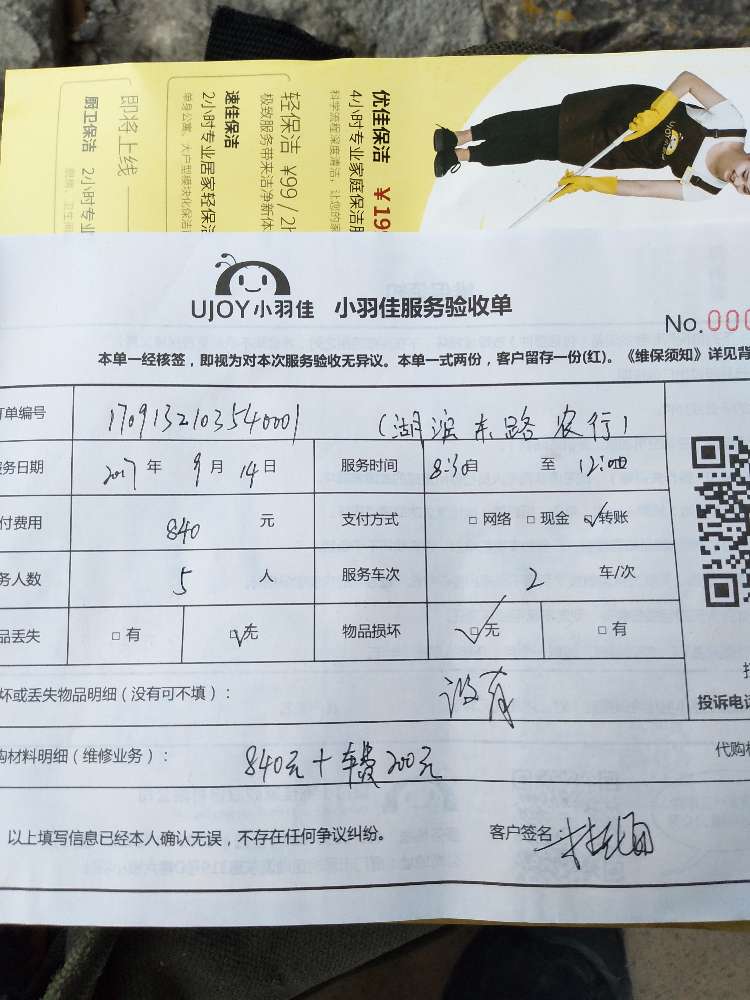 优佳保洁 ￥19
4小时专业家庭保洁服
科学流程深度清洁，让您的家
轻保洁 ￥99/2h
极致服务带来洁净新体
速佳保洁
2小时专业居家轻保洁
单身公寓、大户型模块化保洁
即将上线
厨卫保洁 2小时专业
UJOY
UJOY小羽佳 小羽佳服务验收单
No.000
本单一经核签，即视为对本次服务验收无异议。本单一式两份，客户留存一份(红)。《维保须知》详见背
订单编号 1709132103540001 (湖滨东路农行)
服务日期 2017年9月14日 服务时间 8:30 至 12:00
付费用 840 元 支付方式 □网络 □现金 ☑转账
务人数 5 人 服务车次 2 车/次
品丢失 □有 ☑无 物品损坏 ☑无 □有
坏或丢失物品明细（没有可不填）： 没有
投诉电话
购材料明细（维修业务）： 840元+车费200元
代购
以上填写信息已经本人确认无误，不存在任何争议纠纷。 客户签名：